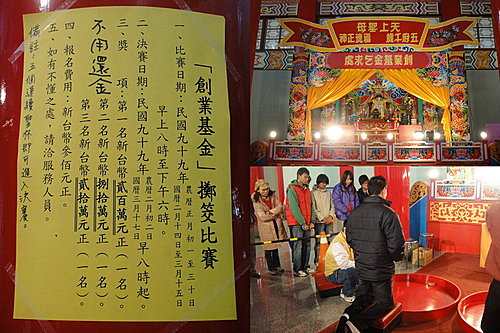 「創業基金」擲筊比賽
一、比賽日期：民國九十九年 農曆正月初一至三十日
國曆二月十四日至三月十五日
早上八時至下午六時。
二、決賽日期：民國九十九年 農曆二月初二日 早八時起。
國曆三月十七日
三、獎　項：第一名新台幣貳百萬元正(一名)。
第二名新台幣捌拾萬元正(一名)。
第三名新台幣貳拾萬元正(一名)。
不用還金
四、報名費用：新台幣參佰元正。
五、如有不懂之處，請洽服務人員。
備註：三個連續聖杯即可進入決賽。
天上聖母
五府千歲 福德正神
創業基金乞求處